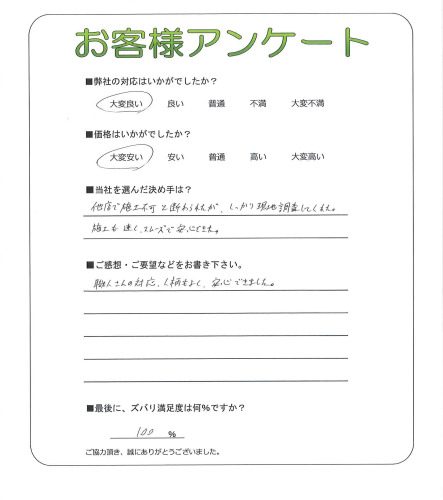 お客様アンケート
■弊社の対応はいかがでしたか？
大変良い 良い 普通 不満 大変不満
■価格はいかがでしたか？
大変安い 安い 普通 高い 大変高い
■当社を選んだ決め手は？
他店で施工不可と断わられたが、しっかり現地調査してくれた。
施工も速く、スムーズで安心できた。
■ご感想・ご要望などをお書き下さい。
職人さんの対応、人柄もよく、安心できました。
■最後に、ズバリ満足度は何％ですか？
100 ％
ご協力頂き、誠にありがとうございました。